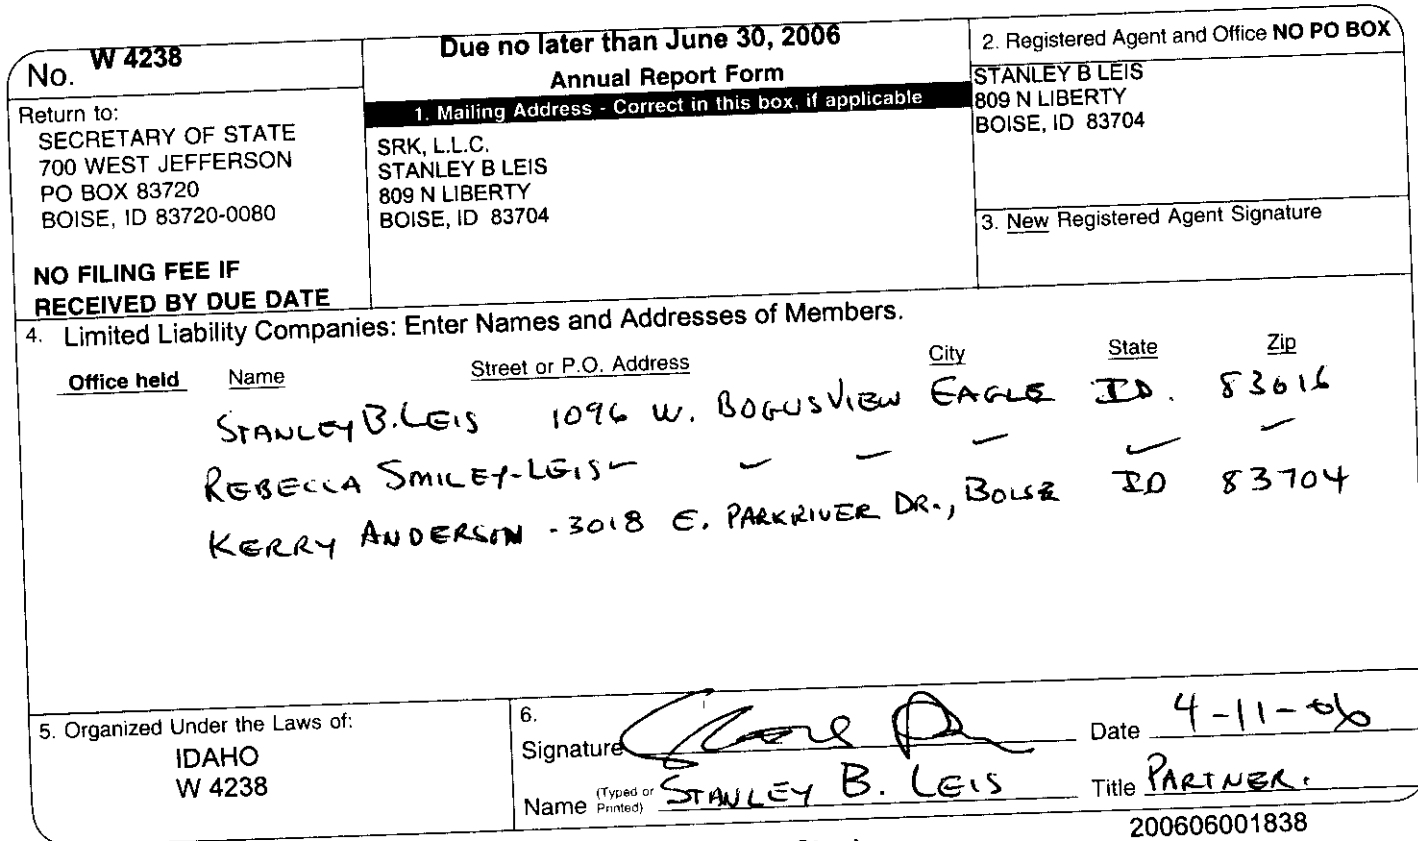 No. W 4238
Return to:
SECRETARY OF STATE
700 WEST JEFFERSON
PO BOX 83720
BOISE, ID 83720-0080
NO FILING FEE IF
RECEIVED BY DUE DATE
Due no later than June 30, 2006
Annual Report Form
1. Mailing Address - Correct in this box, if applicable
SRK, L.L.C.
STANLEY B LEIS
809 N LIBERTY
BOISE, ID 83704
2. Registered Agent and Office NO PO BOX
STANLEY B LEIS
809 N LIBERTY
BOISE, ID 83704
3. New Registered Agent Signature
4. Limited Liability Companies: Enter Names and Addresses of Members.
Office held Name Street or P.O. Address City State Zip
STANLEY B. LEIS 1096 W. BOGUSVIEW EAGLE ID. 83616
REBECCA SMILEY-LEIS
KERRY ANDERSON - 3018 E. PARKRIVER DR., BOISE ID 83704
5. Organized Under the Laws of:
IDAHO
W 4238
6.
Signature
Date 4-11-06
Name (Typed or Printed) STANLEY B. LEIS
Title PARTNER.
200606001838